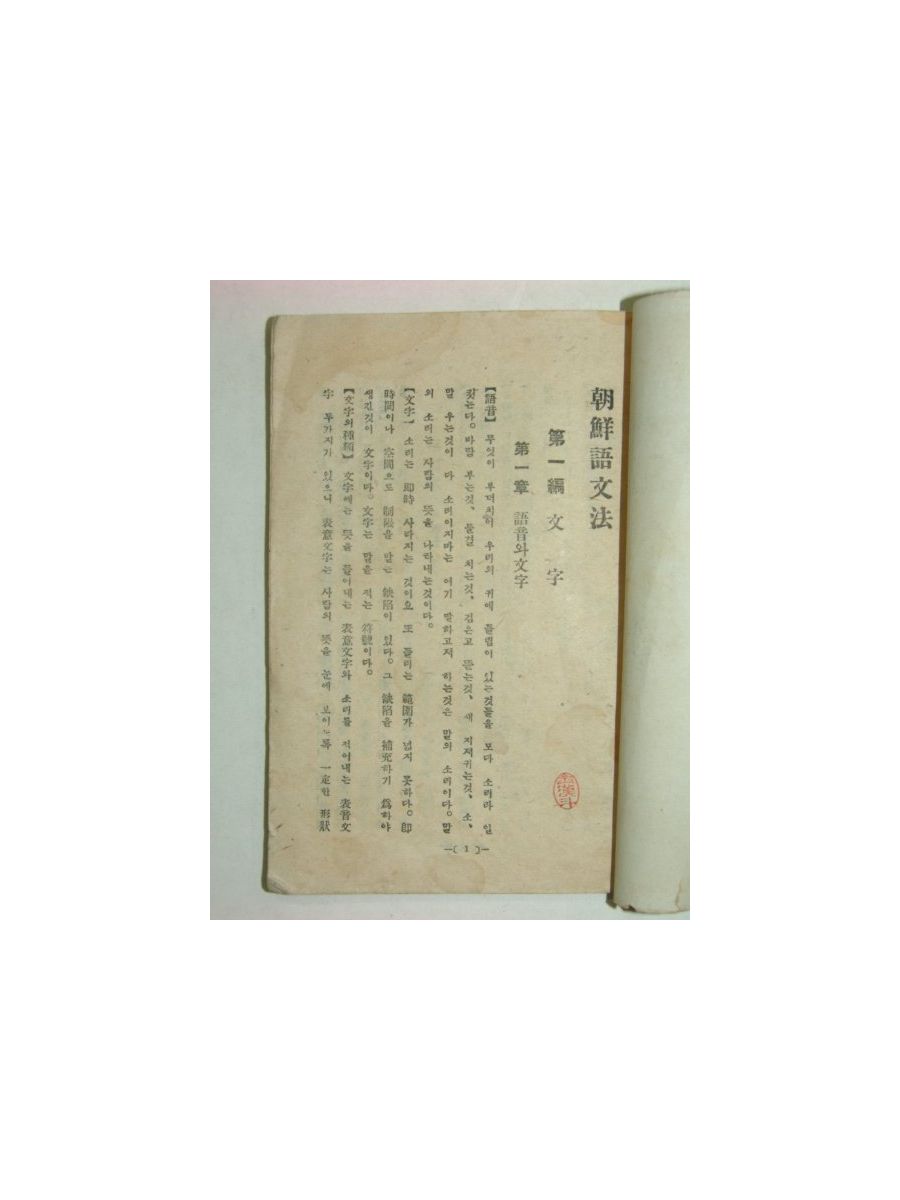 朝鮮語文法
第一編 文 字
第一章 語音와文字
【語音】 무엇이 부더치어 우리의 귀에 들림이 있는것들을 모다 소리라 일
컷는다。바람 부는것、물결 치는것、검은고 뜯는것、새 지저귀는것、소、
말 우는것이 다 소리이지마는 여기 말하고저 하는것은 말의 소리이다。말
의 소리는 사람의 뜻을 나타내는것이다。
【文字】 소리는 即時 사라지는 것이요 또 들리는 範圍가 넓지 못하다。即
時間이나 空間으로 制限을 받는 缺陷이 있다。그 缺陷을 補充하기 爲하야
생긴것이 文字이다。文字는 말을 적는 符號이다。
【文字의種類】 文字에는 뜻을 들어내는 表意文字와 소리를 적어내는 表音文
字 두가지가 있으니 表意文字는 사람의 뜻을 눈에 보이도록 一定한 形狀
—( 1 )—